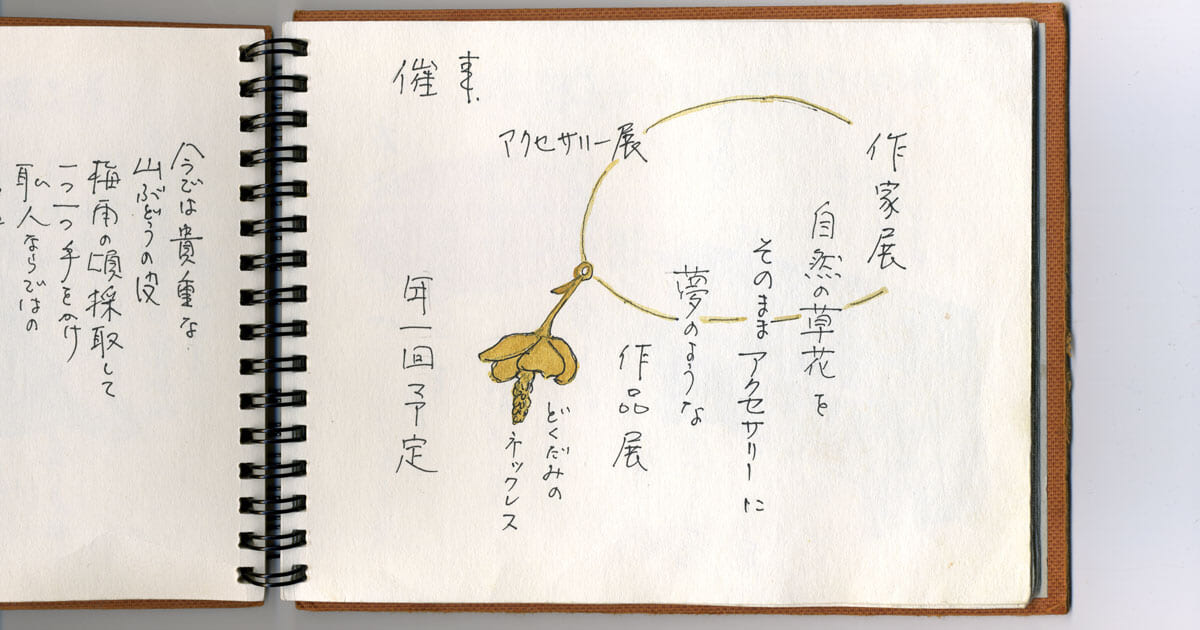 催事
アクセサリー展
作家展
自然の草花を
そのままアクセサリーに
夢のような
作品展
どくだみの
ネックレス
年一回予定
今では貴重な
山ぶどうの皮
梅雨の頃採取して
一つ一つ手をかけ
職人ならではの